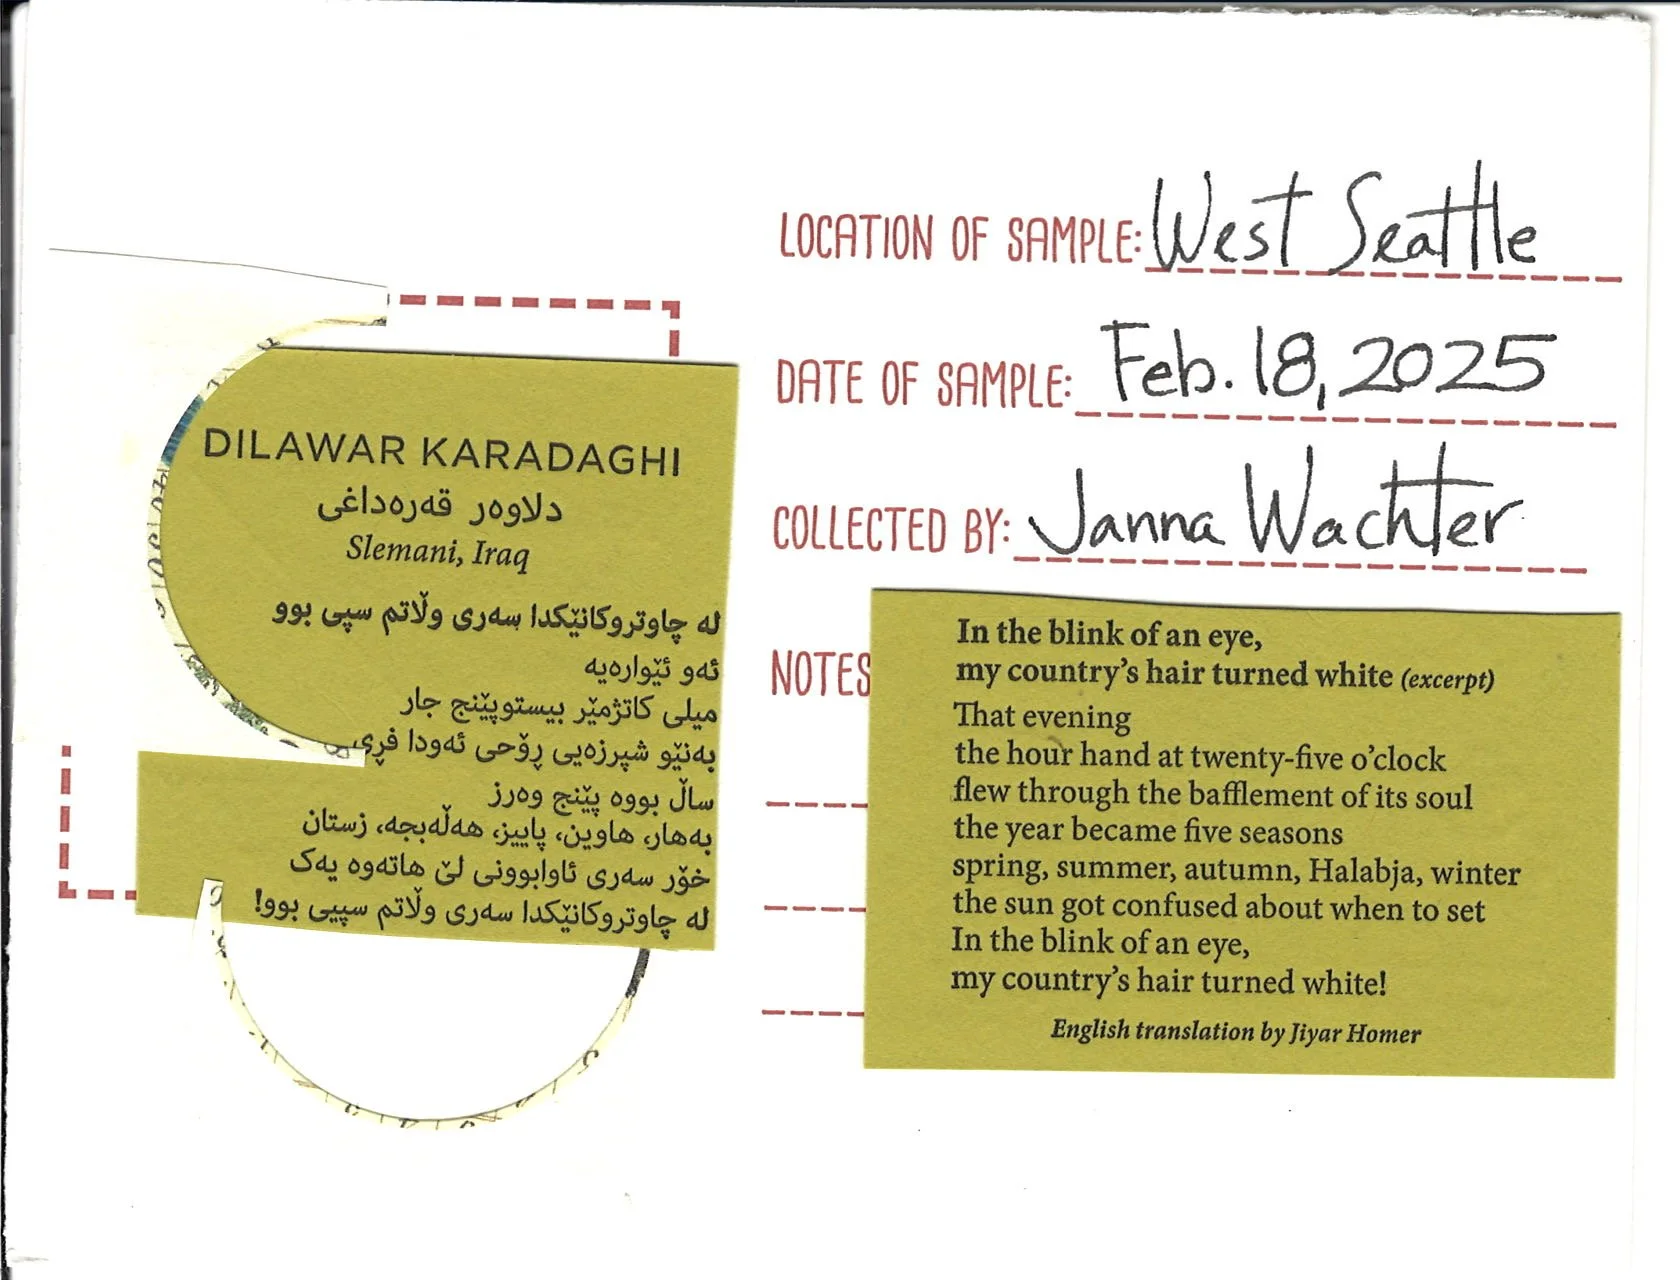 LOCATION OF SAMPLE: West Seattle
DATE OF SAMPLE: Feb. 18, 2025
COLLECTED BY: Janna Wachter
NOTES
DILAWAR KARADAGHI
دلاوەر قەرەداغی
Slemani, Iraq
لە چاوتروکانێکدا سەری وڵاتم سپی بوو
ئەو ئێوارەیە
میلی کاتژمێر بیستوپێنج جار
بەنێو شپرزەیی ڕۆحی ئەودا فڕی
ساڵ بووە پێنج وەرز
بەهار، هاوین، پاییز، هەڵەبجە، زستان
خۆر سەری ئاوابوونی لێ هاتەوە یەک
لە چاوتروکانێکدا سەری وڵاتم سپیی بوو!
In the blink of an eye,
my country’s hair turned white (excerpt)
That evening
the hour hand at twenty-five o’clock
flew through the bafflement of its soul
the year became five seasons
spring, summer, autumn, Halabja, winter
the sun got confused about when to set
In the blink of an eye,
my country’s hair turned white!
English translation by Jiyar Homer